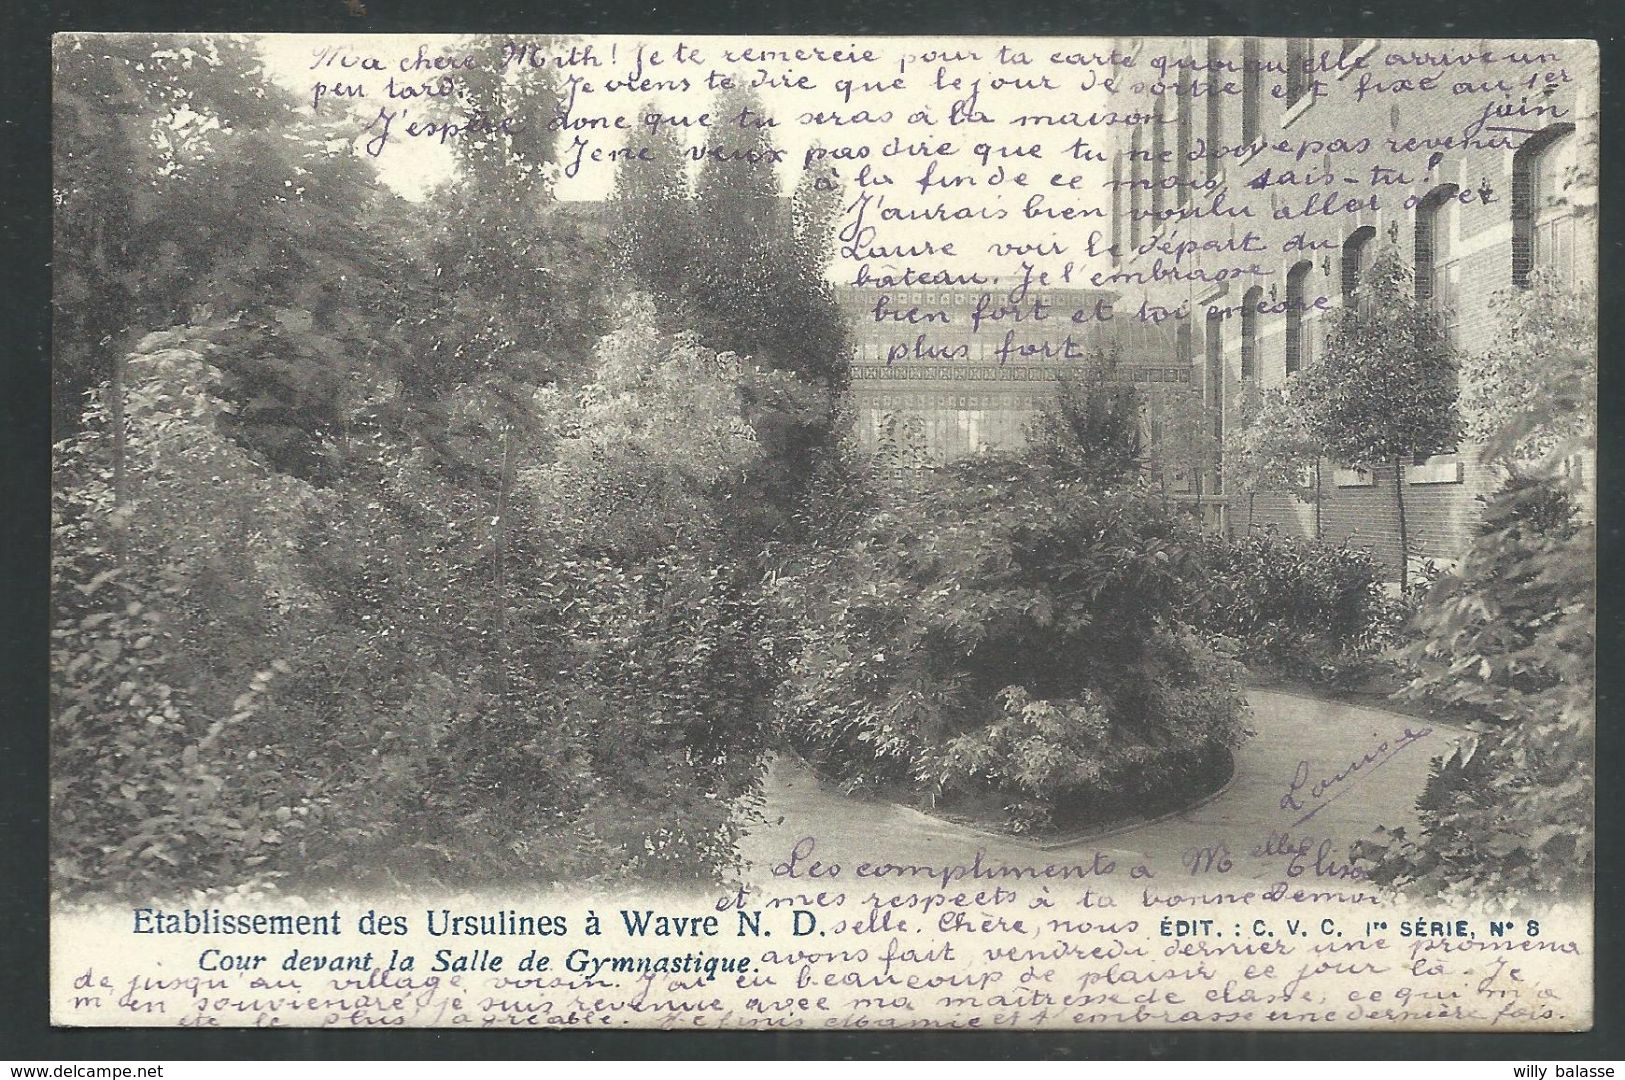 Ma chère Mith! Je te remercie pour ta carte quoiqu'elle arrive un
peu tard. Je viens te dire que le jour de sortie est fixé au 1er
juin
J'espère donc que tu seras à la maison.
Je ne veux pas dire que tu ne doive pas revenir
à la fin de ce mois, sais-tu!
J'aurais bien voulu aller avec
Laure voir le départ du
bâteau. Je l'embrasse
bien fort et toi encore
plus fort
Louise
Les compliments à Melle Elisa
et mes respects à ta bonne Demoi
selle. Chère, nous
Etablissement des Ursulines à Wavre N. D.
ÉDIT. : C. V. C. Ire SÉRIE, No 8
Cour devant la Salle de Gymnastique.
avons fait, vendredi dernier une promena
de, jusqu'au village voisin. J'ai eu beaucoup de plaisir ce jour là. Je
m'en souviendré, je suis revenue avec ma maîtresse de classe, ce qui m'a
été le plus agréable. Je finis et t'embrasse une dernière fois.
willy balasse